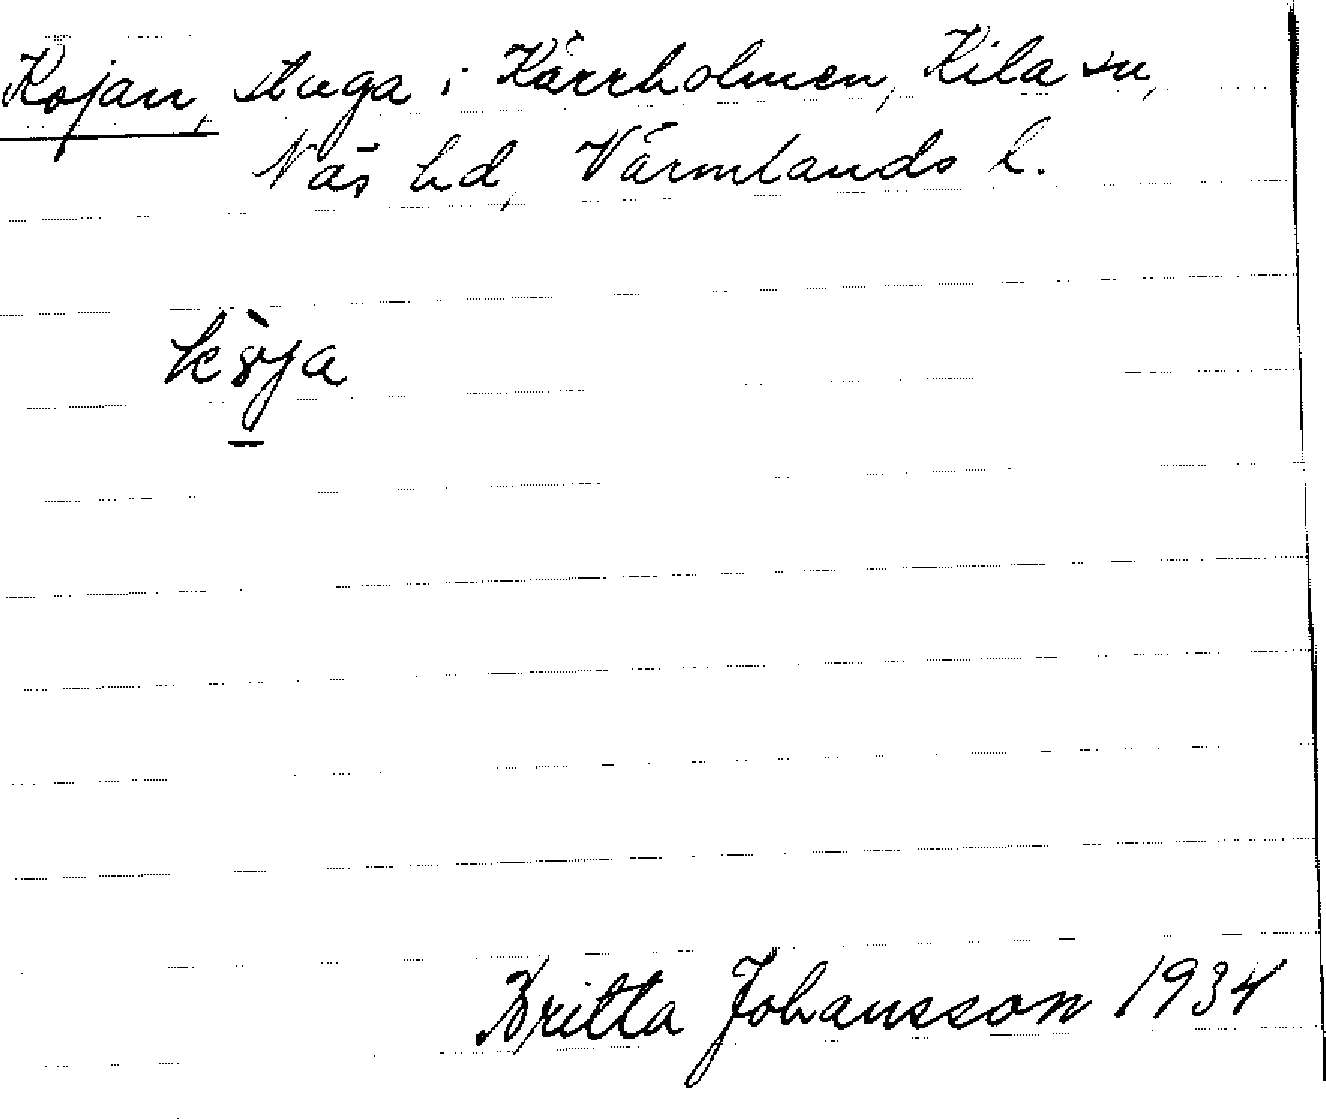 Kojan, stuga i Kärrholmen, Kila sn,
Näs hd, Värmlands l.
Britta Johansson 1934